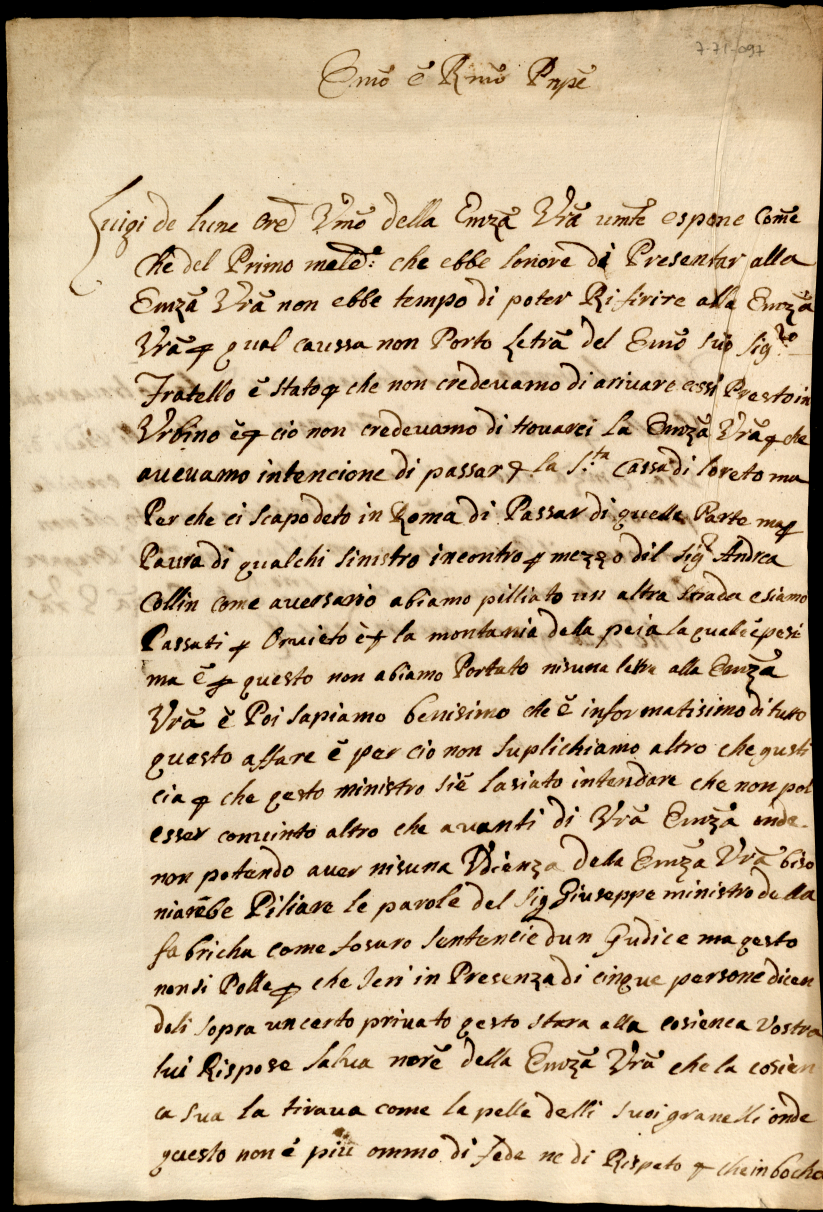 7-71-097
Emõ è Rmõ Pnpẽ
Luigi de lune Ored Vmõ della Emzã Vrã umtẽ espone Comẽ
che del Primo meledo: che ebbe lonore di Presentar alla
Emzã Vrã non ebbe tempo di poter Riferire alla Emzã
Vrã ꝑ qual caussa non Porto Letrã del Emõ suõ Sigre
Fratello è stato ꝑ che non credevamo di arivare cossi Presto in
Vrbino è ꝑ cio non credevamo di trovarci la Emzã Vrã ꝑ che
avevamo intencione di passar ꝑ la Sta Cassa di loreto ma
Per che ci scapo deto in Roma di Passar di quella Parte ma ꝑ
Paura di qualchi sinistro incontro ꝑ mezzo dil Sigr Andrea
Collin come aversario abiamo pilliato un altra strada e siamo
Passati ꝑ Orvieto è ꝑ la montania dela peia la quale è pesi
ma è ꝑ questo non abiamo Portato nisuna letra alla Emzã
Vrã è Poi sapiamo benisimo che è informatisimo di tuto
questo affare è per cio non suplichiamo altro che gusti
cia ꝑ che qesto ministro siè lasiato intendare che non pol
esser convinto altro che avanti di Vrã Emzã onde
non potendo aver nisuna Vdienza dela Emzã Vrã biso
niarebe Piliare le parole del Sig Giuseppe ministro della
fabricha come fosaro sentencie dun Gudice ma qesto
non si Polle ꝑ che Ieri in Presenza di cinque persone dicen
doli sopra un certo privato qesto stara alla cosienca Vostra
lui Rispose salva norẽ della Emzã Vrã che la cosien
ca sua la tirava come la pelle delli suoi granelli onde
questo non è piu ommo di fede ne di Rispeto ꝑ che in bocha